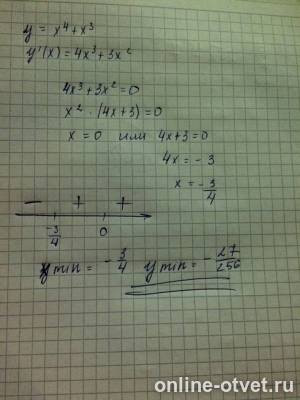 y = x⁴ + x³
y'(x) = 4x³ + 3x²
4x³ + 3x² = 0
x² · (4x + 3) = 0
x = 0 или 4x + 3 = 0
4x = -3
x = -3/4
− + +
-3/4 0
xmin = -3/4 ymin = -27/256
online-otvet.ru